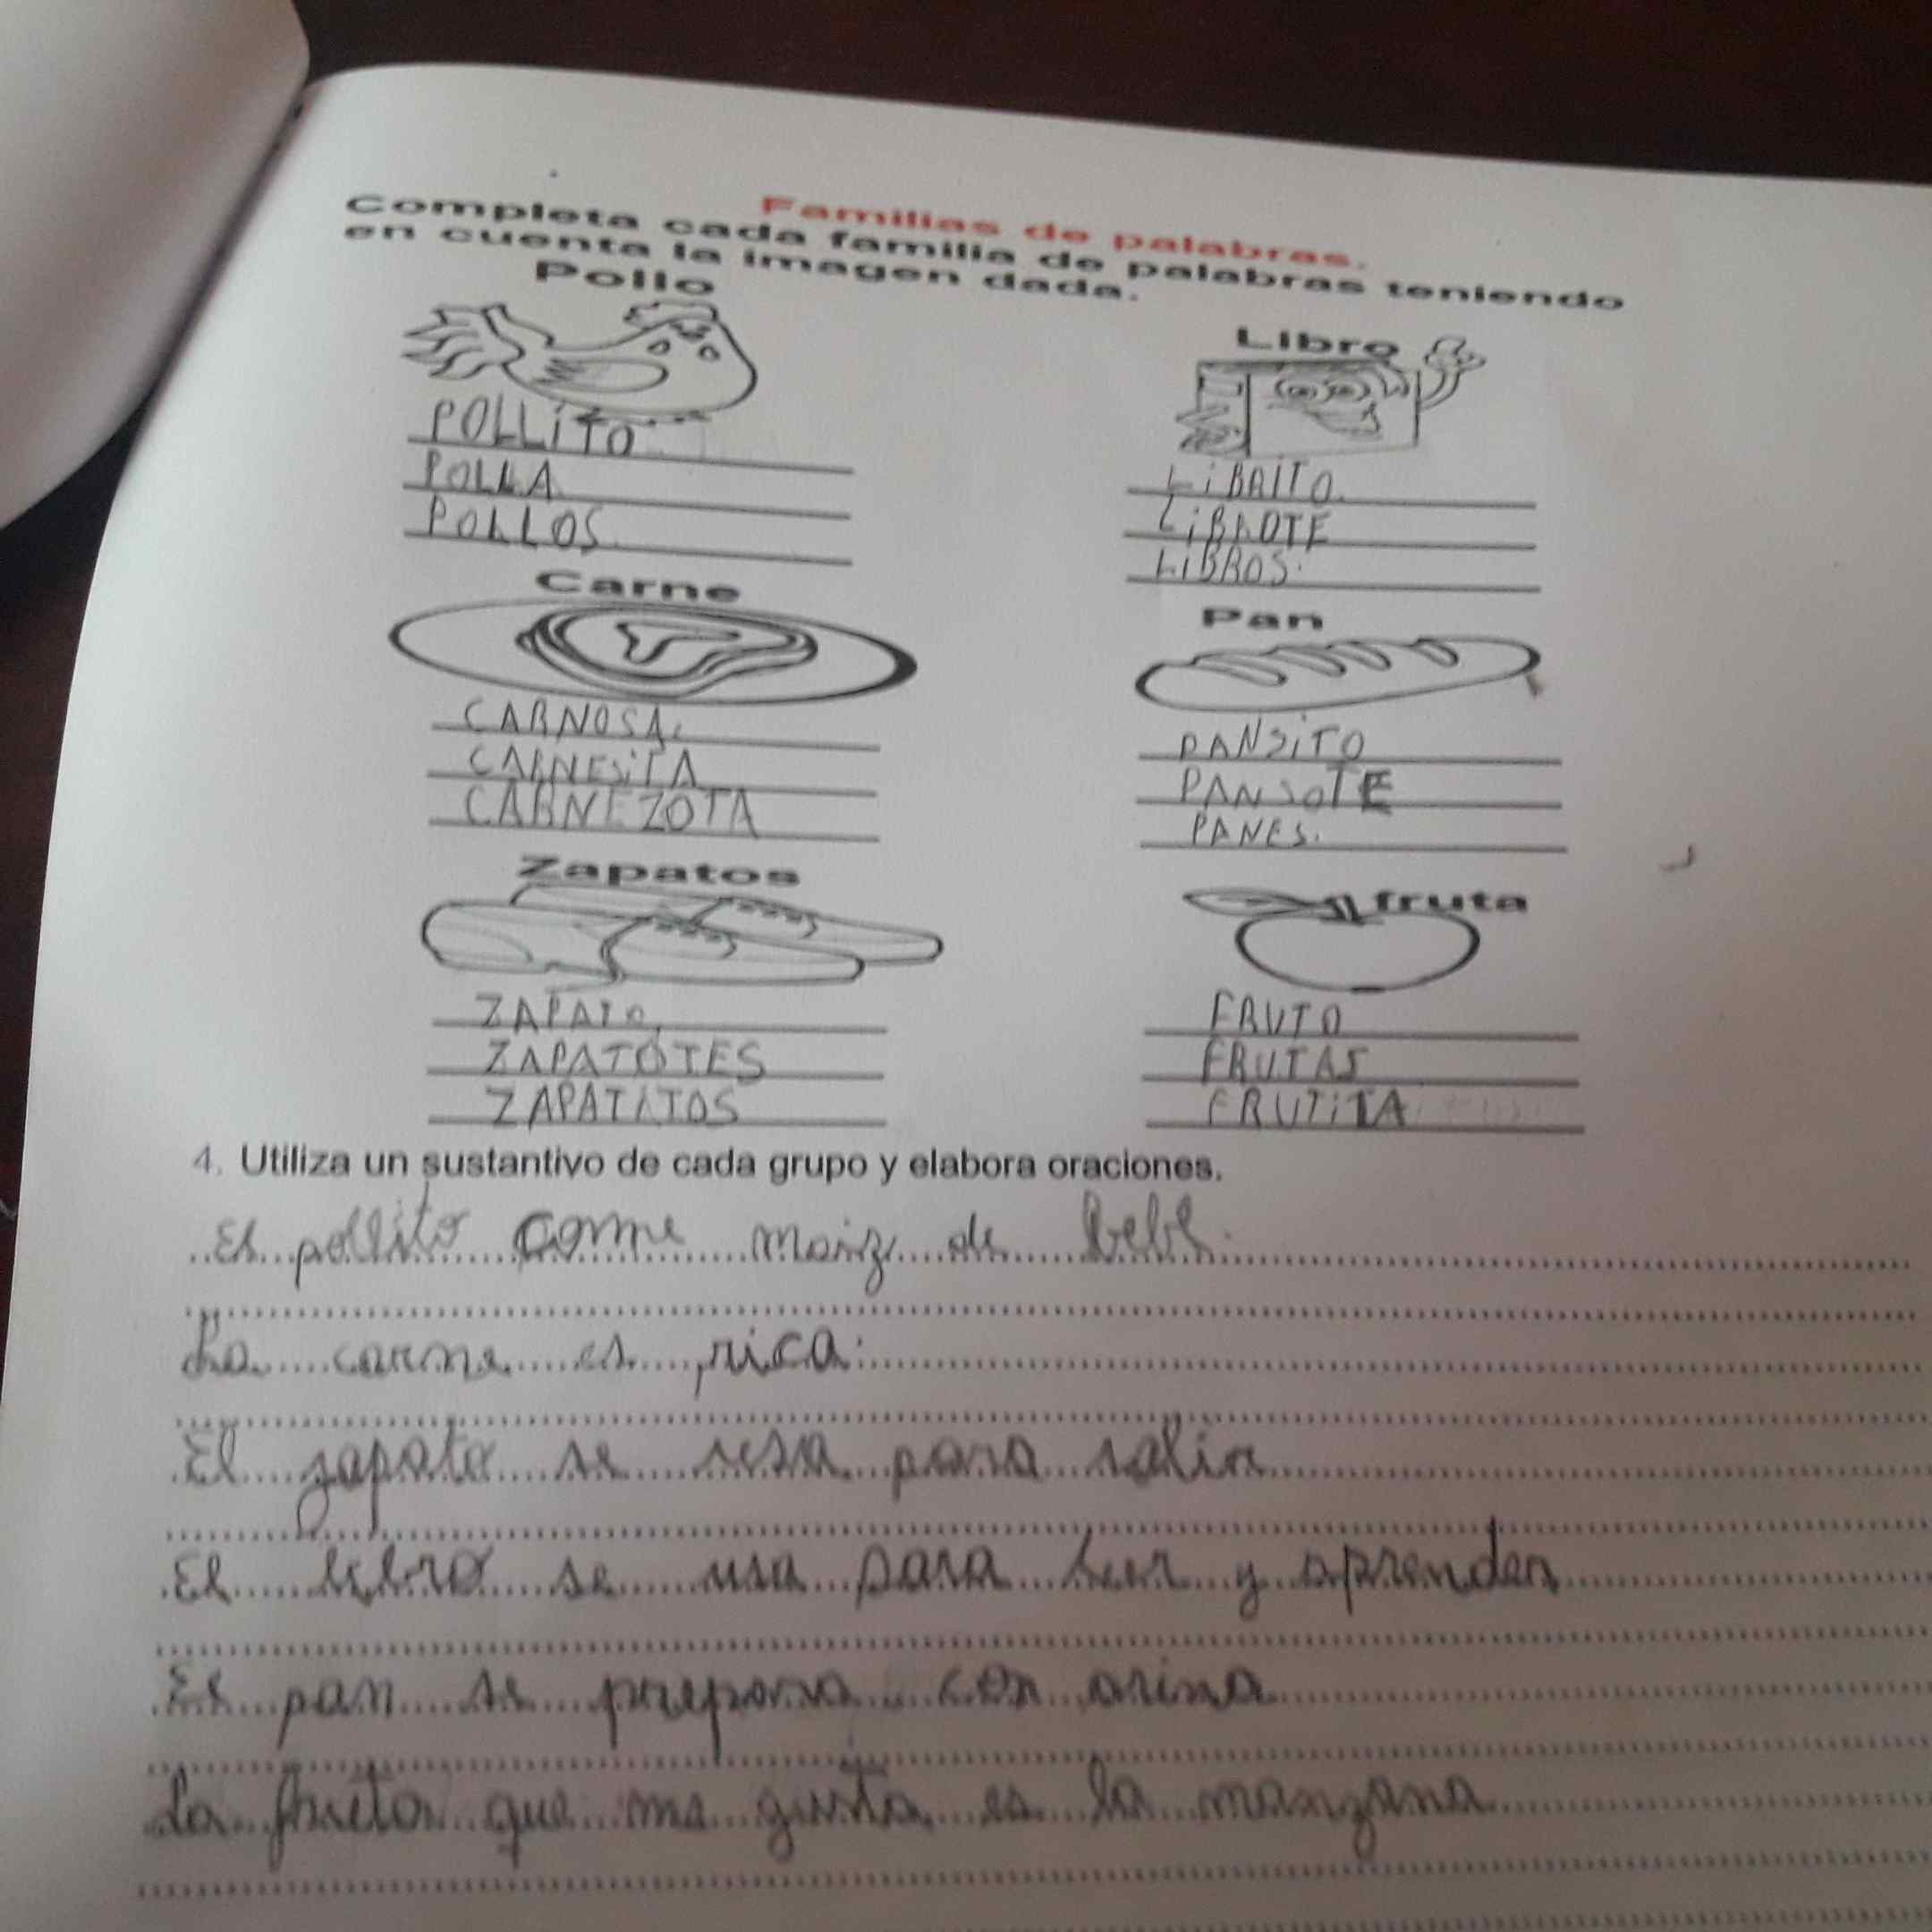 Familias de palabras.
Completa cada familia de palabras teniendo
en cuenta la imagen dada.
Pollo
POLLiTO
POLLA
POLLOS
Libro
LiBRITO.
LiBROTE
LiBROS.
Carne
CARNOSA.
CARNESiTA
CARNEZOTA
Pan
PANSiTO
PANSOTE
PANES.
Zapatos
ZAPATO
ZAPATOTES
ZAPATITOS
fruta
FRUTO
FRUTAS
FRUTiTA
4. Utiliza un sustantivo de cada grupo y elabora oraciones.
El pollito come maiz de bebe.
La carne es rica.
El zapato se usa para salir
El libro se usa para leer y aprender
El pan se prepara con arina
La fruta que me gusta es la manzana